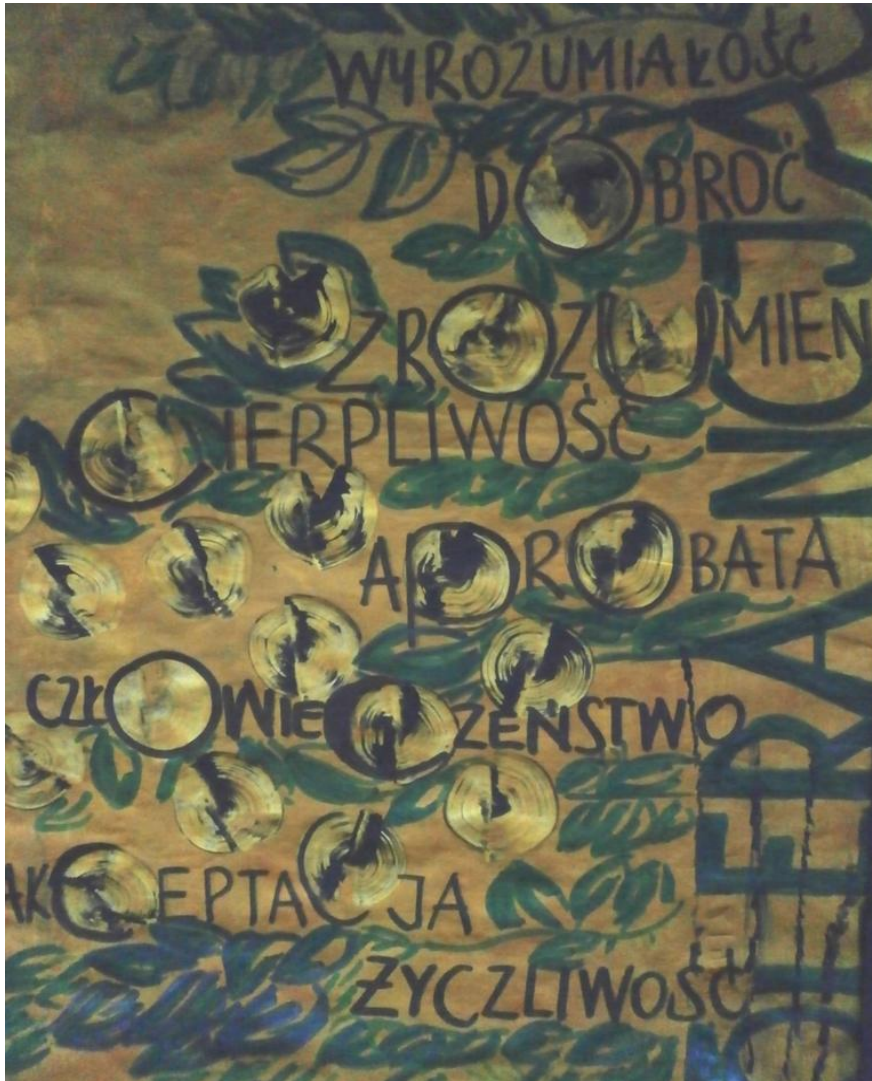 WYROZUMIAŁOŚĆ
DOBROĆ
ZROZUMIEN
CIERPLIWOŚĆ
APROBATA
CZŁOWIECZEŃSTWO
AKCEPTACJA
ŻYCZLIWOŚĆ
OLERANCJA